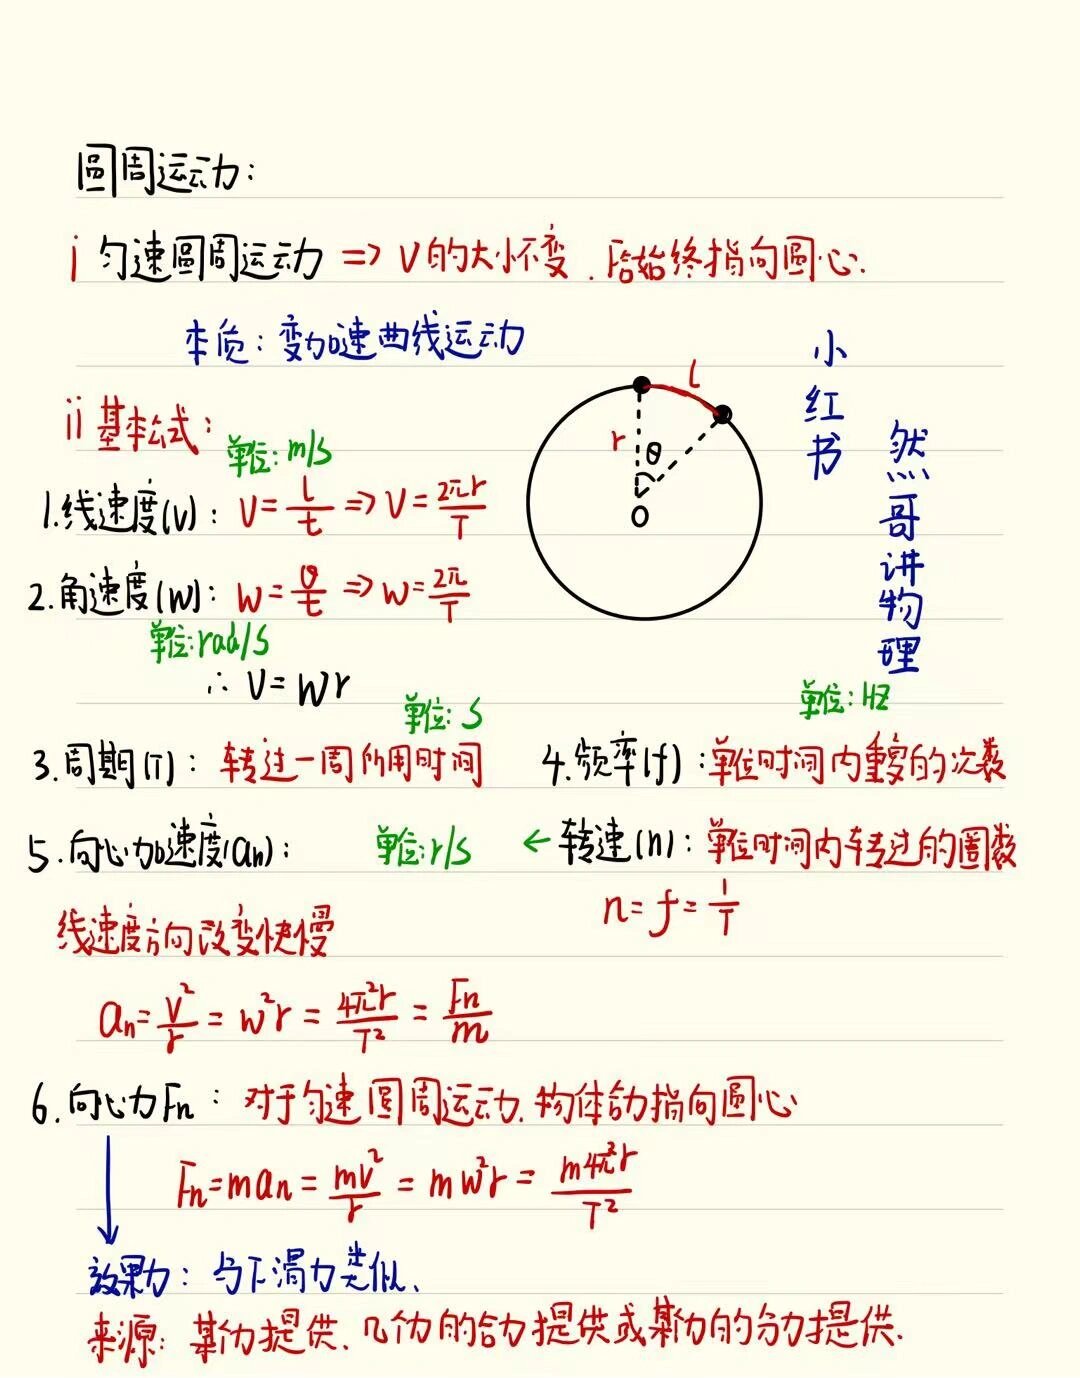 圆周运动：
i 匀速圆周运动 => V的大小不变．F合始终指向圆心.
本质：变加速曲线运动
ii 基本公式：
单位：m/s
1.线速度(v)：V=l/t => V=2πr/T
2.角速度(W)：W=θ/t => W=2π/T
单位：rad/s
∴ V=Wr
l
r
θ
O
小红书
然哥讲物理
单位：S
3.周期(T)：转过一周所用时间
单位：HZ
4.频率(f)：单位时间内重复的次数
5.向心加速度(an)：
单位：r/s ← 转速(n)：单位时间内转过的圈数
n=f=1/T
线速度方向改变快慢
an=V²/r=w²r=4π²r/T²=Fn/m
6.向心力Fn：对于匀速圆周运动.物体合力指向圆心
Fn=man=mv²/r=mw²r=m4π²r/T²
效果力：与下滑力类似、
来源：某力提供、几个力的合力提供或某力的分力提供.